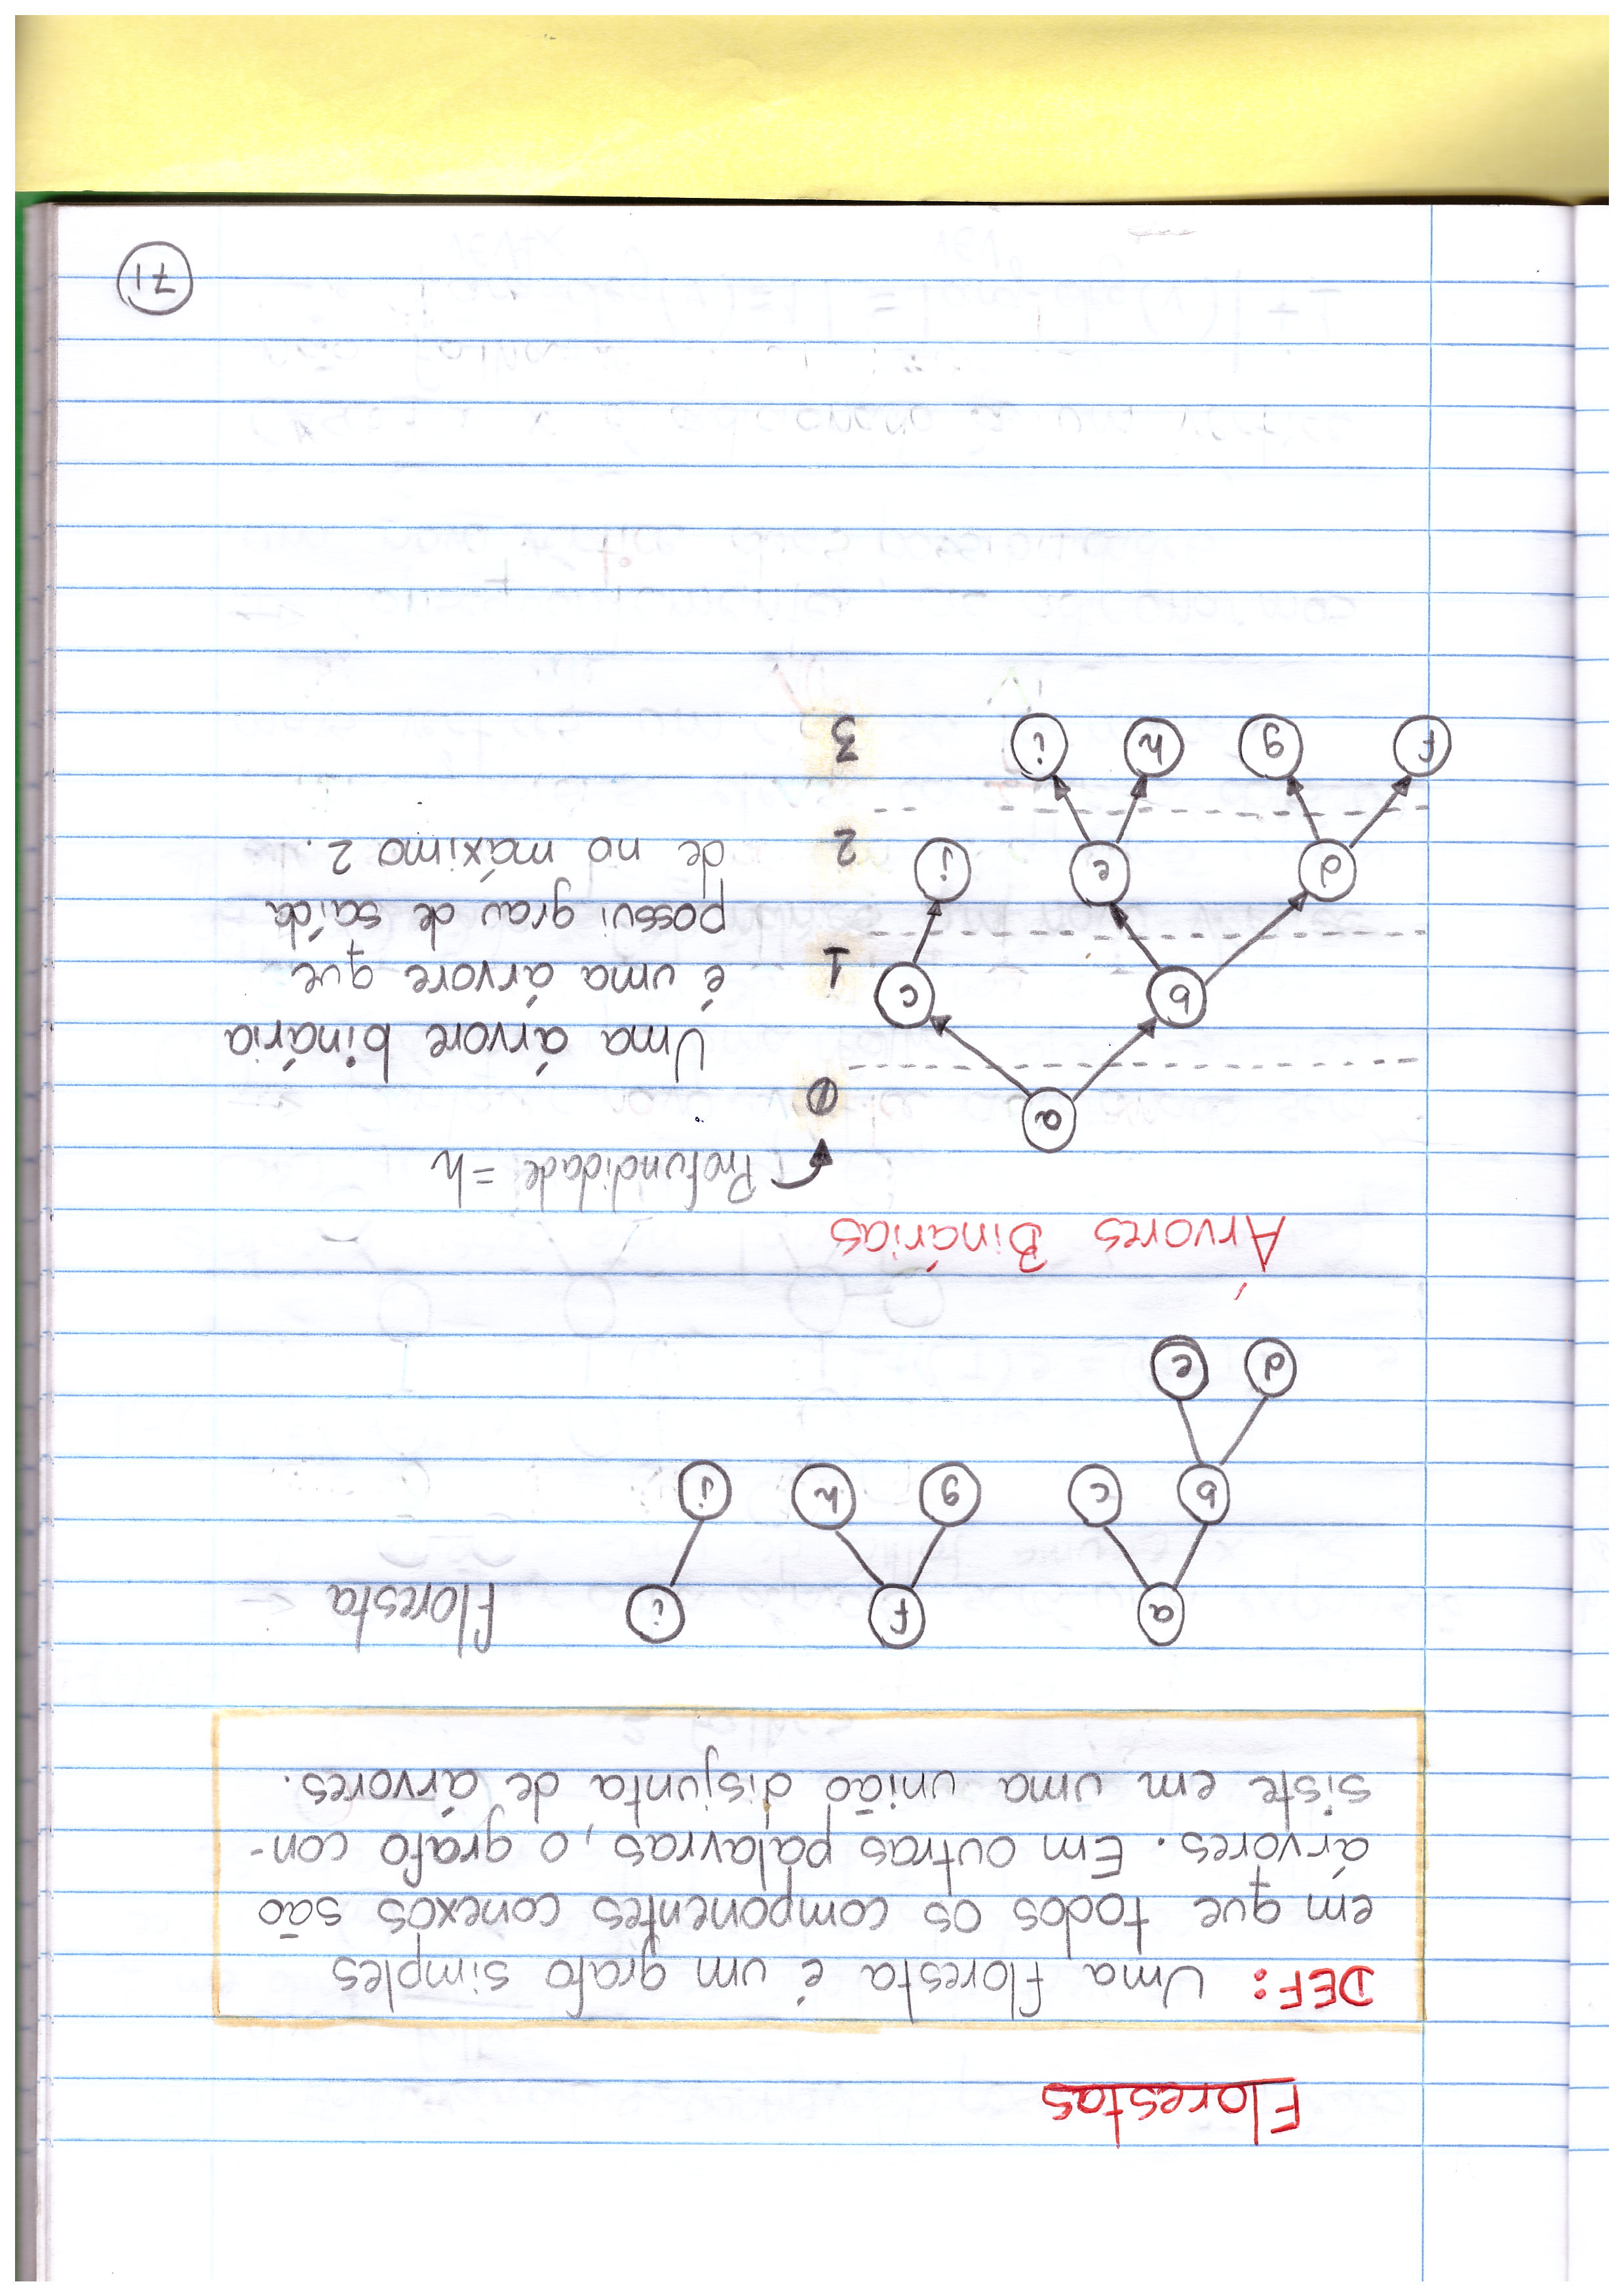 Florestas
DEF: Uma floresta é um grafo simples
em que todos os componentes conexos são
árvores. Em outras palavras, o grafo con-
siste em uma união disjunta de árvores.
a f i floresta
b c g h j
d e
Árvores Binárias
Profundidade = h
a 0
Uma árvore binária
b c 1 é uma árvore que
possui grau de saída
d e j 2 de no máximo 2.
f g h i 3
71